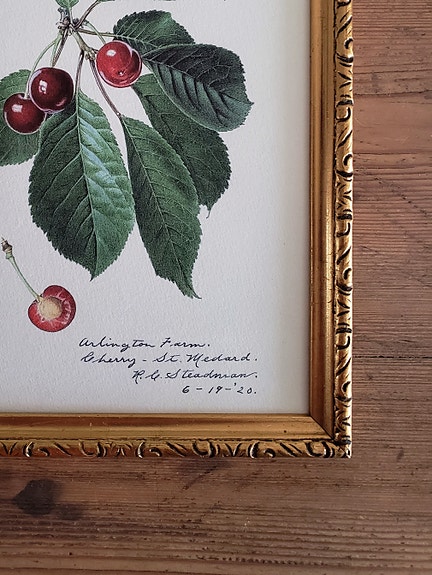 Arlington Farm.
Cherry - St. Medard.
R. C. Steadman.
6-19-'20.